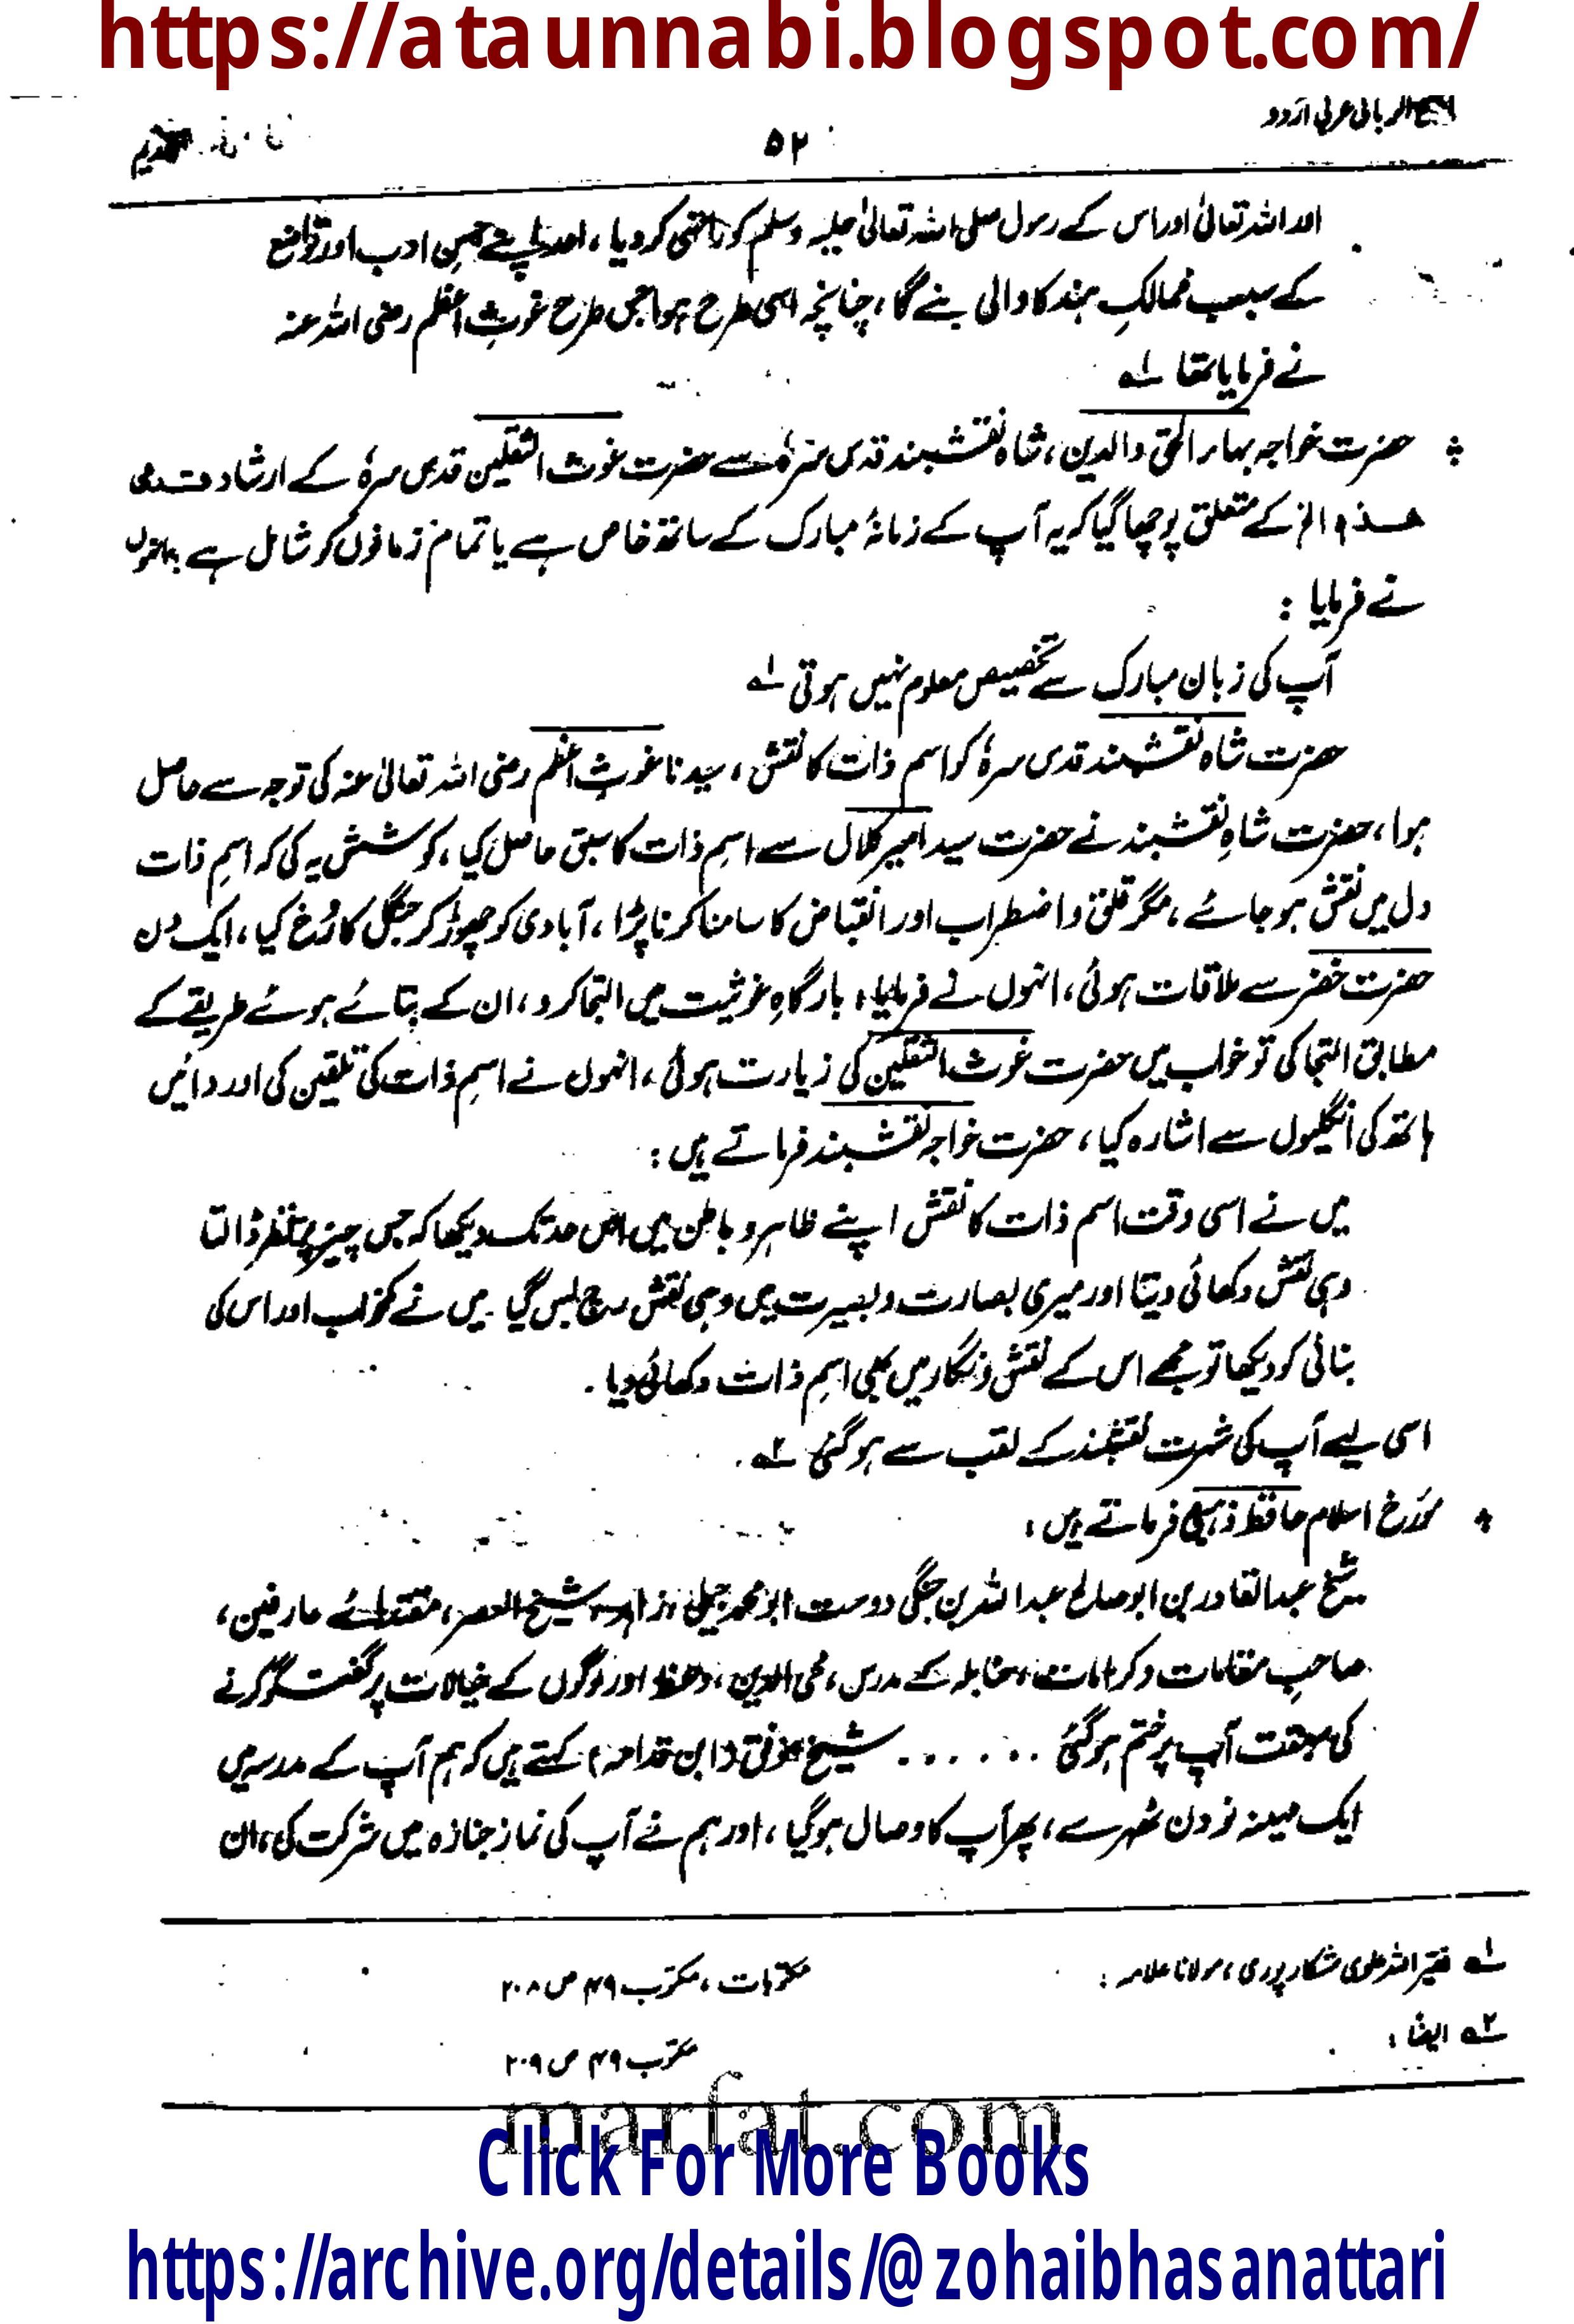 https://ataunnabi.blogspot.com/
الربانی عربی اردو
۵۲
اور اللہ تعالیٰ اور اس کے رسول صلی اللہ تعالیٰ علیہ وسلم کو راضی کر دیا، اور اپنے حسنِ ادب اور تواضع
کے سبب ممالکِ ہند کا والی بنے گا، چنانچہ اسی طرح ہوا جس طرح غوثِ اعظم رضی اللہ عنہ
نے فرمایا تھا لہ
حضرت خواجہ بہاء الحق والدین، شاہ نقشبند قدس سرہٗ سے حضرت غوث الثقلین قدس سرہٗ کے ارشاد قدمی
ھذہ الخ کے متعلق پوچھا گیا کہ یہ آپ کے زمانۂ مبارک کے ساتھ خاص ہے یا تمام زمانوں کو شامل ہے؟ انہوں
نے فرمایا :
آپ کی زبان مبارک سے تخصیص معلوم نہیں ہوتی لہ
حضرت شاہ نقشبند قدس سرہٗ کو اسم ذات کا نقش، سیدنا غوثِ اعظم رضی اللہ تعالیٰ عنہ کی توجہ سے حاصل
ہوا، حضرت شاہِ نقشبند نے حضرت سید امیر کلال سے اسمِ ذات کا سبق حاصل کیا، کوشش یہ کی کہ اسمِ ذات
دل میں نقش ہو جائے، مگر قلق و اضطراب اور انقباض کا سامنا کرنا پڑا، آبادی کو چھوڑ کر جنگل کا رُخ کیا، ایک دن
حضرت خضر سے ملاقات ہوئی، انہوں نے فرمایا، بارگاہِ غوثیت میں التجا کرو، ان کے بتائے ہوئے طریقے کے
مطابق التجا کی تو خواب میں حضرت غوث الثقلین کی زیارت ہوئی، انہوں نے اسمِ ذات کی تلقین کی اور دائیں
ہاتھ کی انگلیوں سے اشارہ کیا، حضرت خواجہ نقشبند فرماتے ہیں :
میں نے اسی وقت اسم ذات کا نقش اپنے ظاہر و باطن میں اس حد تک دیکھا کہ جس چیز پر نظر ڈالتا
وہی نقش دکھائی دیتا اور میری بصارت و بصیرت میں وہی نقش رچ بس گیا۔ میں نے کمخواب اور اس کی
بنائی کو دیکھا تو مجھے اس کے نقش و نگار میں بھی اسمِ ذات دکھائی دیا۔
اسی لیے آپ کی شہرت نقشبند کے لقب سے ہو گئی ۲ہ
مؤرخ اسلام حافظ ذہبی فرماتے ہیں :
شیخ عبدالقادر بن ابو صالح عبداللہ بن جنگی دوست ابو محمد جیلی، زاہد، شیخ العصر، مقتدائے عارفین،
صاحبِ مقامات و کرامات، حنابلہ کے مدرس، محی الدین، وعظ اور لوگوں کے خیالات پر گفتگو کرنے
کی سبقت آپ پر ختم ہو گئی . . . . . . شیخ موفق (ابن قدامہ) کہتے ہیں کہ ہم آپ کے مدرسہ میں
ایک مہینہ نو دن ٹھہرے، پھر آپ کا وصال ہو گیا، اور ہم نے آپ کی نماز جنازہ میں شرکت کی، ان
۱ہ فقیر اللہ علوی شکارپوری، مولانا علامہ : مکتوبات، مکتوب ۴۹ ص ۲۰۸
۲ہ ایضاً : مکتوب ۴۹ ص ۲۰۹
marfat.com
Click For More Books
https://archive.org/details/@zohaibhasanattari